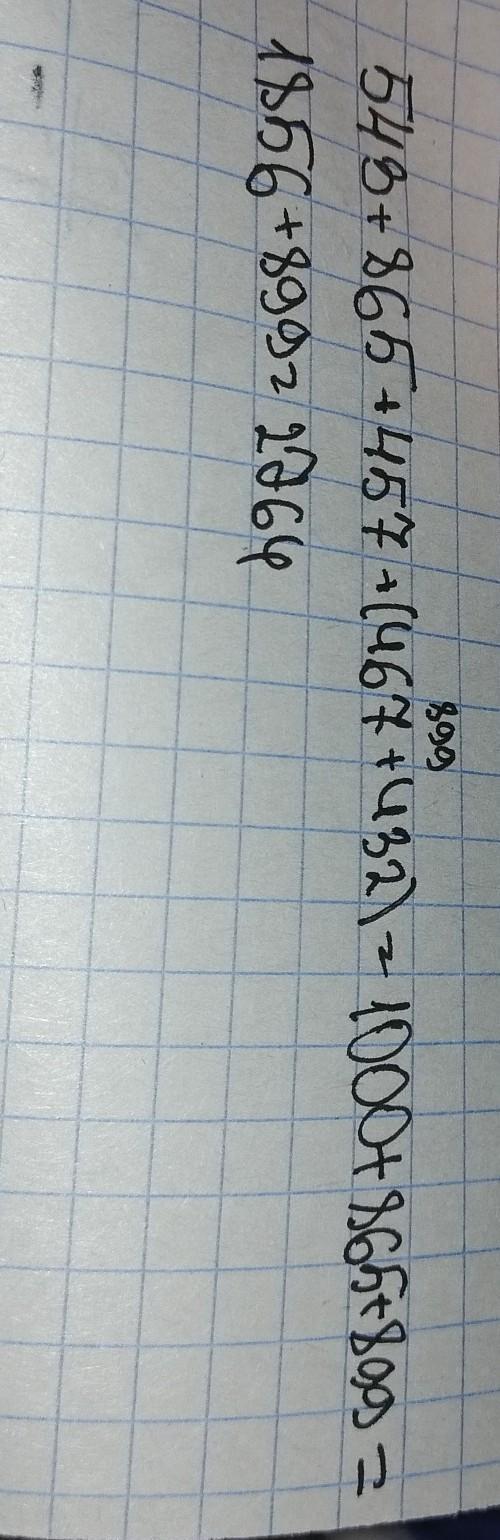 899
543+865+457+(467+432)=1000+865+899=
1856+899=2764